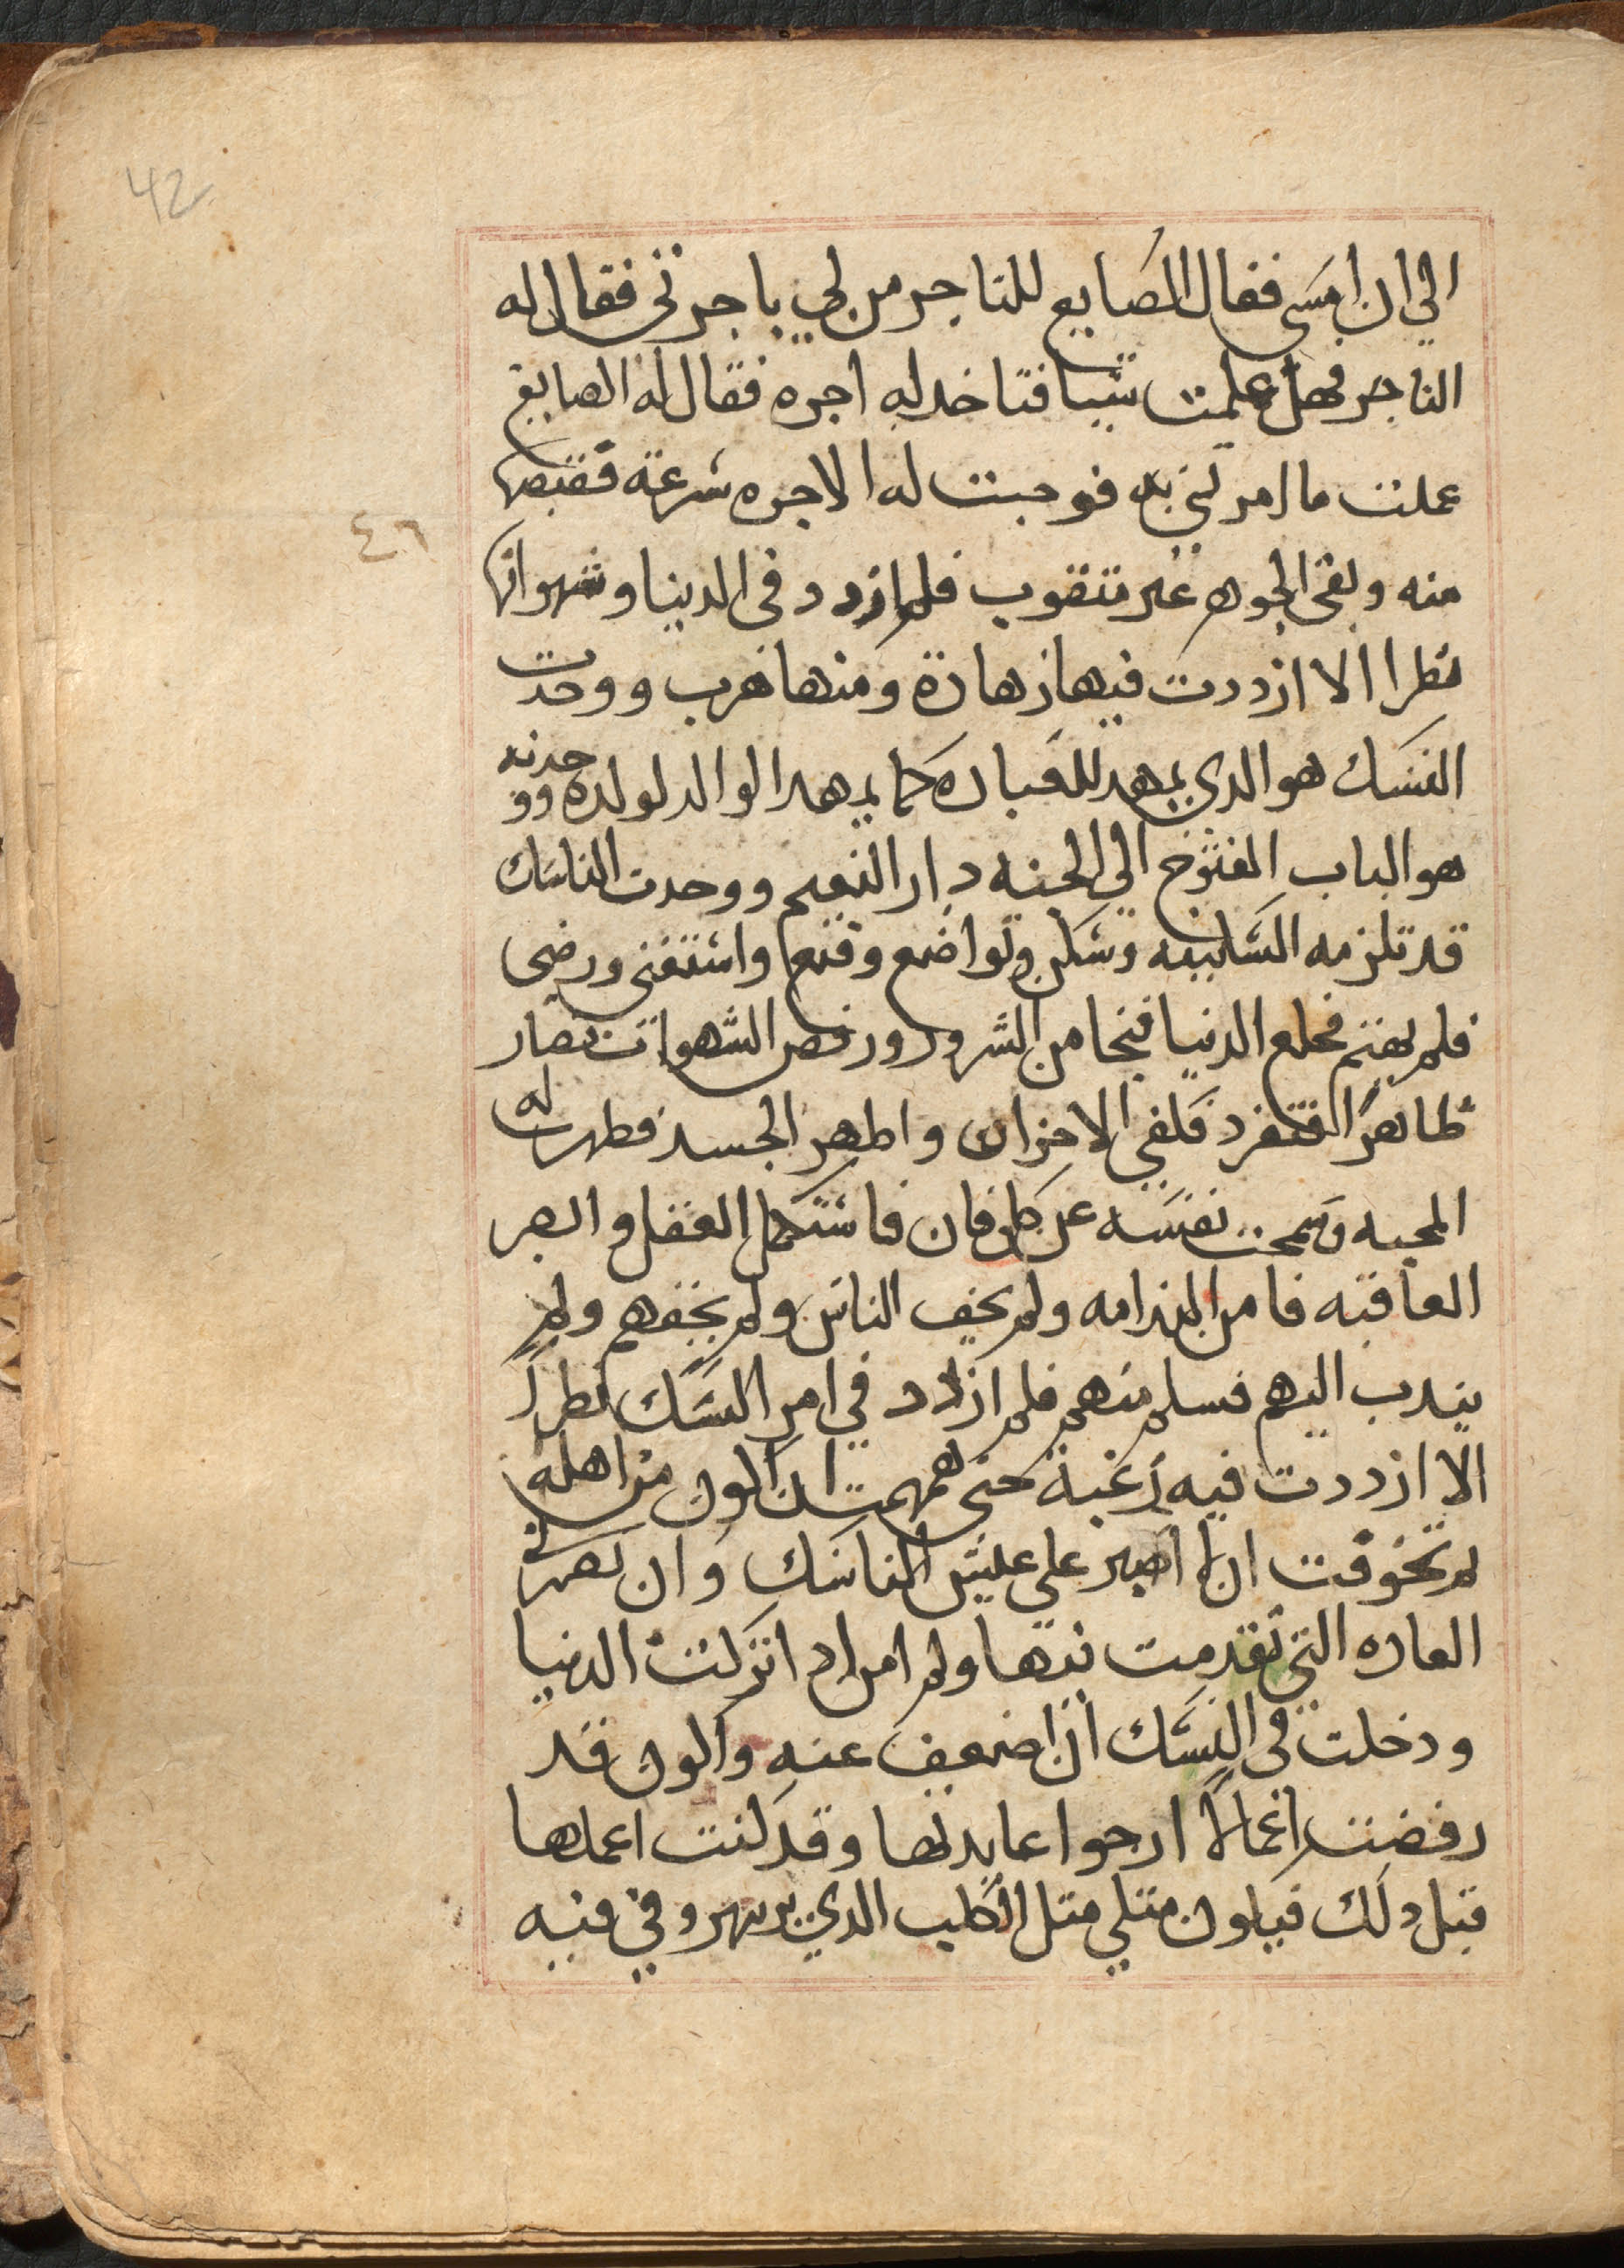 42
الي ان امسي فقال الصايع للتاجر من لي باجرتي فقال له
التاجر فهل عملت شيا فتاخد له اجره فقال له الصايغ
عملت ما امرتني به فوجبت له الاجره شرعة فقبضها
٤٦
منه وبقي الجوهر غير متقوب فلم ازدد في الدنيا وشهواتها
نظرا الا ازددت فيها زهادة ومنها هرب ووجدت
النسك هو الدي يمهد للعباده كما يمهد الوالد لولده ووجدته
هو الباب المفتوح الي الجنه دار النعيم ووجدت الناسك
قد تلزمه السكينه وشكر وتواضع وقنع واستغني ورضي
فلم يهتم فخلع الدنيا فنجا من الشرور ورفض الشهوات فصار
طاهرا انفرد فكفي الاحزان واطهر الجسد فظهرت له
المحبه وسمحت نفسه عن كل فان فاستكمل العقل وابصر
العاقبه فامن الندامه ولم يخف الناس ولم يخفهم ولم
يندب اليهم فسلم منهم فلم ازدد في امر النسك نظراً
الا ازددت فيه رغبة حتي هممت ان اكون من اهله
ثم تخوفت ان لا اصبر علي عيش الناسك وان تضرني
العاده التي تقدمت فيها ولم امن ان تركت الدنيا
ودخلت في النسك ان اضعف عنه واكون قد
رفضت اعمالاً ارجوا عايدتها وقد كنت اعملها
قبل دلك فيكون متلي متل الكلب الدي بر بنهر وفي فيه